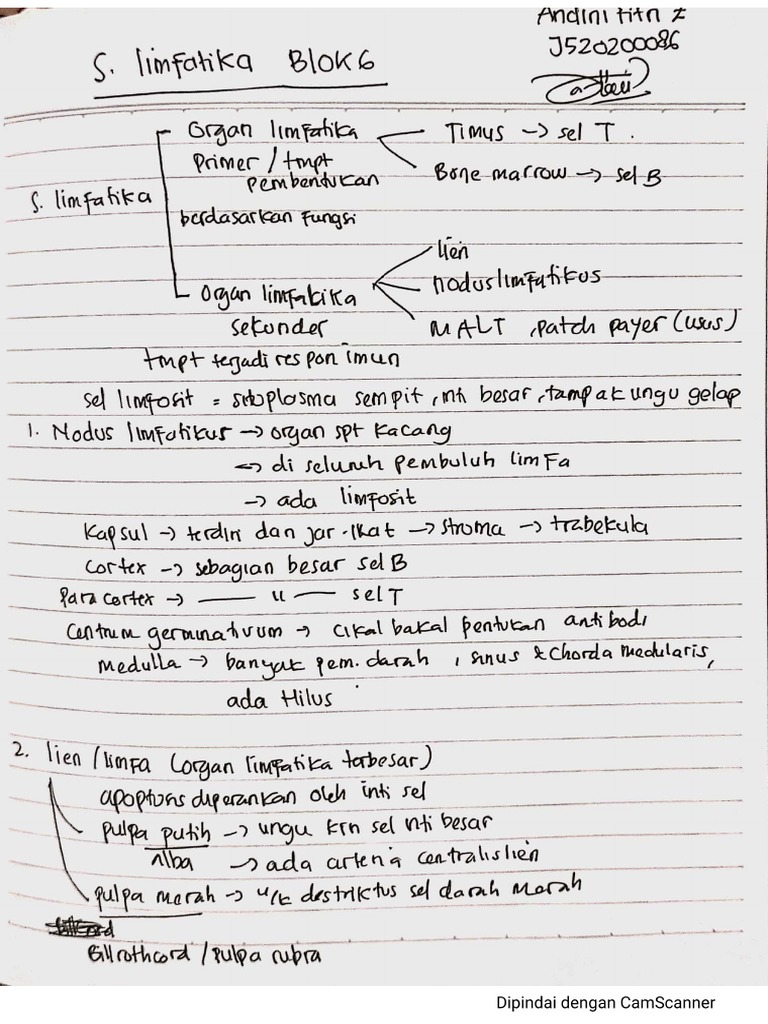 Andini Fitri Z
J520200086
S. limfatika BLOK 6
Organ limfatika
Primer / tmpt
pembentukan
Timus -> sel T.
Bone marrow -> sel B
S. limfatika
berdasarkan Fungsi
Organ limfatika
sekunder
lien
noduslimfatikus
MALT, patch payer (usus)
tmpt terjadi respon imun
sel limfosit = sitoplasma sempit, inti besar, tampak ungu gelap
1. Nodus limfatikus -> organ spt kacang
-> di seluruh pembuluh limfa
-> ada limfosit
Kapsul -> terdiri dari jar. ikat -> stroma -> trabekula
Cortex -> sebagian besar sel B
Para cortex -> —— u —— sel T
Centrum germinativum -> cikal bakal pentukan antibodi
Medulla -> banyak pem. darah, sinus & Chorda medularis,
ada Hilus
2. lien / limfa (organ limfatika terbesar)
apoptosis diperankan oleh inti sel
pulpa putih -> ungu krn sel inti besar
alba -> ada arteria centralis lien
pulpa merah -> u/k destriktus sel darah merah
Billrothcord / pulpa rubra
Dipindai dengan CamScanner